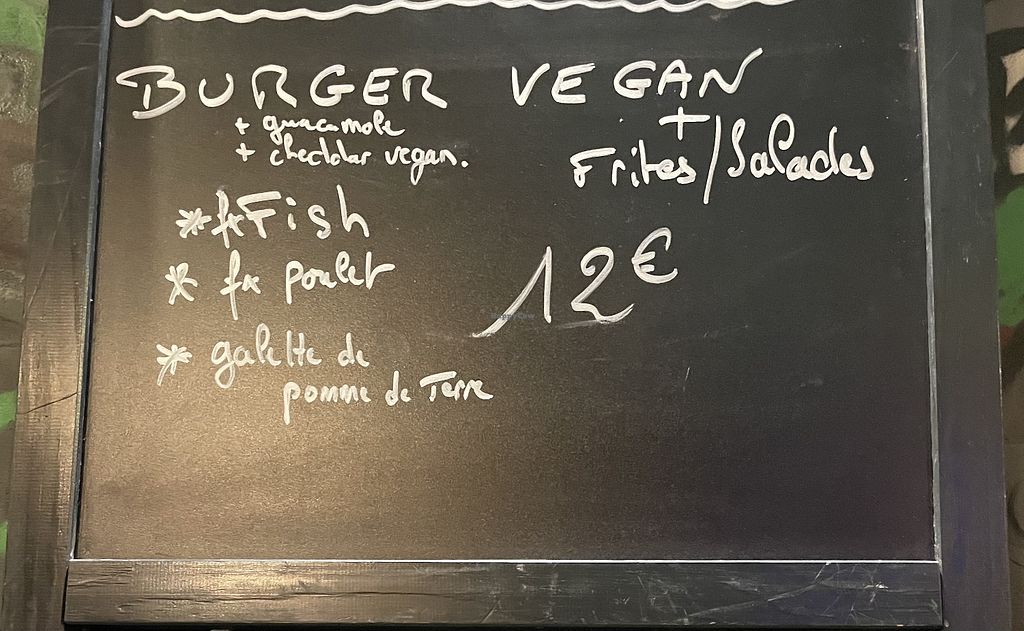 BURGER VEGAN
+ guacamole
+ cheddar vegan.
+
Frites/Salades
* fx Fish
* fx poulet
12€
* galette de
pomme de Terre
HappyCow